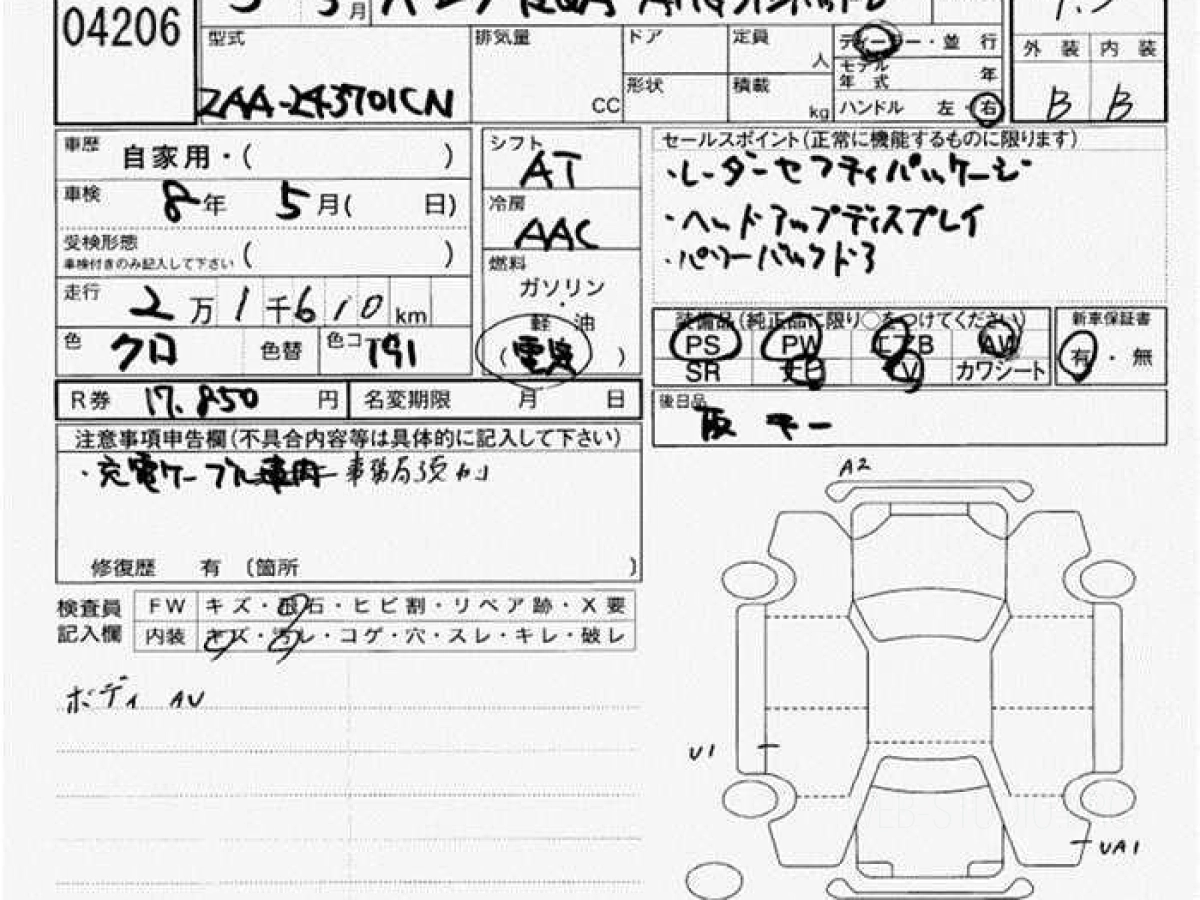 04206
5 月
型式 排気量 ドア 定員 ディーラー・並 行
人 モデル年式 年 外 装 内 装
ZAA-243701CN CC 形状 積載 kg ハンドル 左・右 B B
車歴 自家用・( )
車検 8年 5月( 日)
受検形態
車検付きのみ記入して下さい ( )
走行 2万1千610km
色 クロ 色替 色コ 191
シフト AT
冷房 AAC
燃料
ガソリン
・
軽 油
(電波)
セールスポイント(正常に機能するものに限ります)
・レーダーセフティパッケージ
・ヘッドアップディスプレイ
・パワーバックドア
装備品(純正品に限り○をつけてください)
PS PW エアB AW
SR ナビ TV カワシート
新車保証書
有・無
R券 17,850 円 名変期限 月 日
後日品
取 キー
注意事項申告欄(不具合内容等は具体的に記入して下さい)
・充電ケーブル車内 事務局預カリ
修復歴 有 〔箇所 〕
検査員記入欄
FW キズ・飛石・ヒビ割・リペア跡・X要
内装 キズ・汚レ・コゲ・穴・スレ・キレ・破レ
ボディ AU
A2
U1
UA1